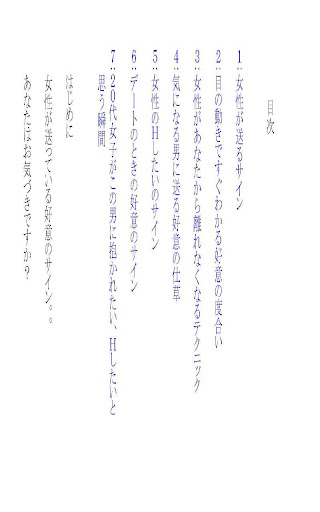 目次
1:女性が送るサイン
2:目の動きですぐわかる好意の度合い
3:女性があなたから離れなくなるテクニック
4:気になる男に送る好意の仕草
5:女性のHしたいのサイン
6:デートのときの好意のサイン
7:20代女子がこの男に抱かれたい、Hしたいと
思う瞬間
はじめに
女性が送っている好意のサイン。。
あなたはお気づきですか?